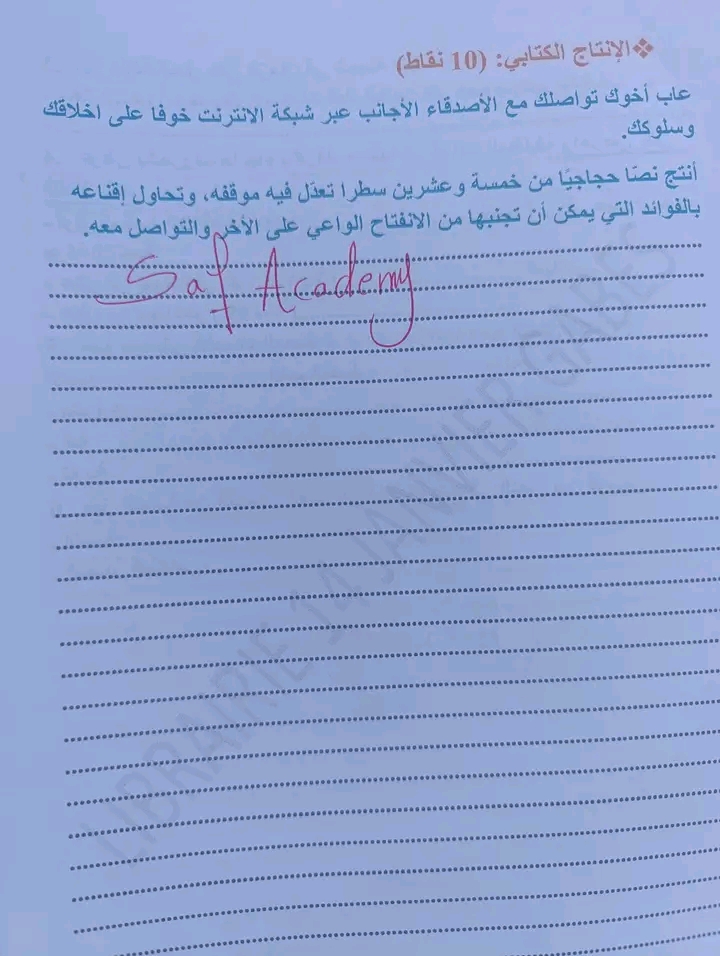 ❖الإنتاج الكتابي: (10 نقاط)
عاب أخوك تواصلك مع الأصدقاء الأجانب عبر شبكة الانترنت خوفا على اخلاقك
وسلوكك.
أنتج نصّا حجاجيّا من خمسة وعشرين سطرا تعدّل فيه موقفه، وتحاول إقناعه
بالفوائد التي يمكن أن تجنيها من الانفتاح الواعي على الآخر والتواصل معه.
Saf Academy
LIBRAIRIE 14 JANVIER GABES